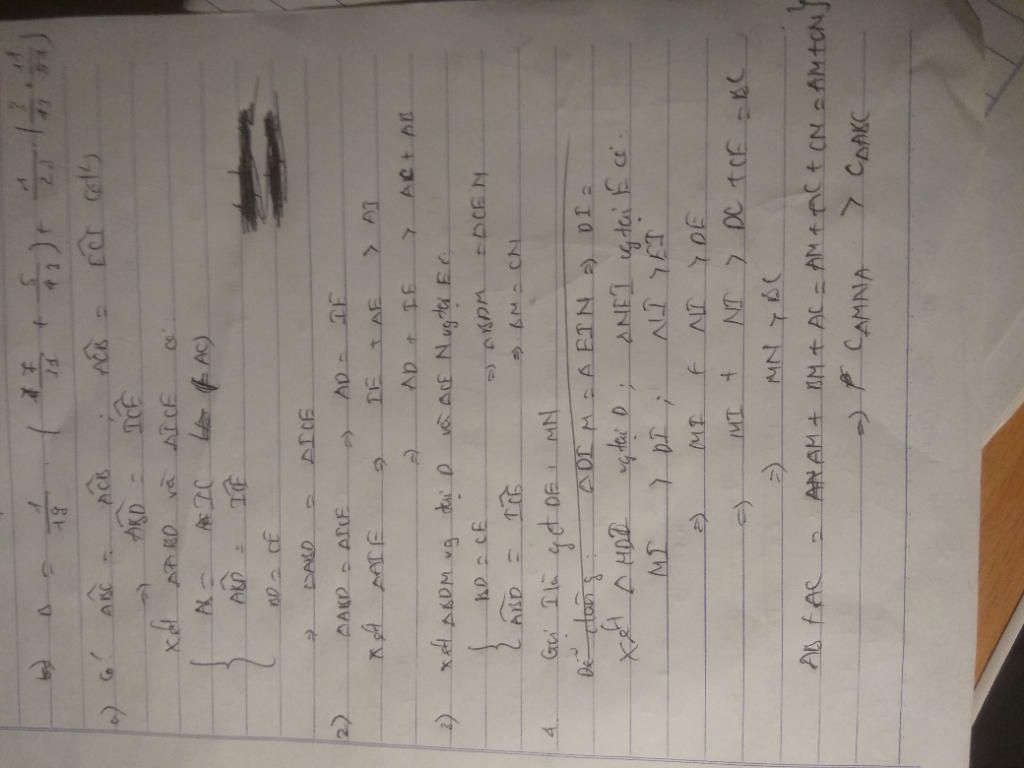 b) B = 1/18 ( 7/11 + 5/13 ) + 1/22 (
a) Có ABC = ACB ; ACB = ECI (đđ)
⇒ ABD = ICE
xét ΔABD và ΔICE có
AB = IC
ABD = ICE
BD = CE
⇒ ΔABD = ΔICE
2) ΔABD = ΔICE ⇒ AD = IE
xét ΔAIE ⇒ IE + AE > AI
⇒ AD + IE > AC + AB
3) xét ΔBDM vg tại D và ΔCE N vg tại E có
BD = CE
ABD = ICE
⇒ ΔBDM = ΔCEN
⇒ BM = CN
4. Gọi I là gđ DE, MN
ΔDI M = Δ EIN ⇒ DI =
xét Δ MDI vg tại D ; ΔNEI vg tại E có.
MI > DI ; NI > EI
⇒ MI + NI > DE
⇒ MI + NI > DC + CE = BC
⇒ MN > BC
AB + AC = AM + BM + AC = AM + AC + CN = AM + AN
⇒ CAMNA > CΔABC